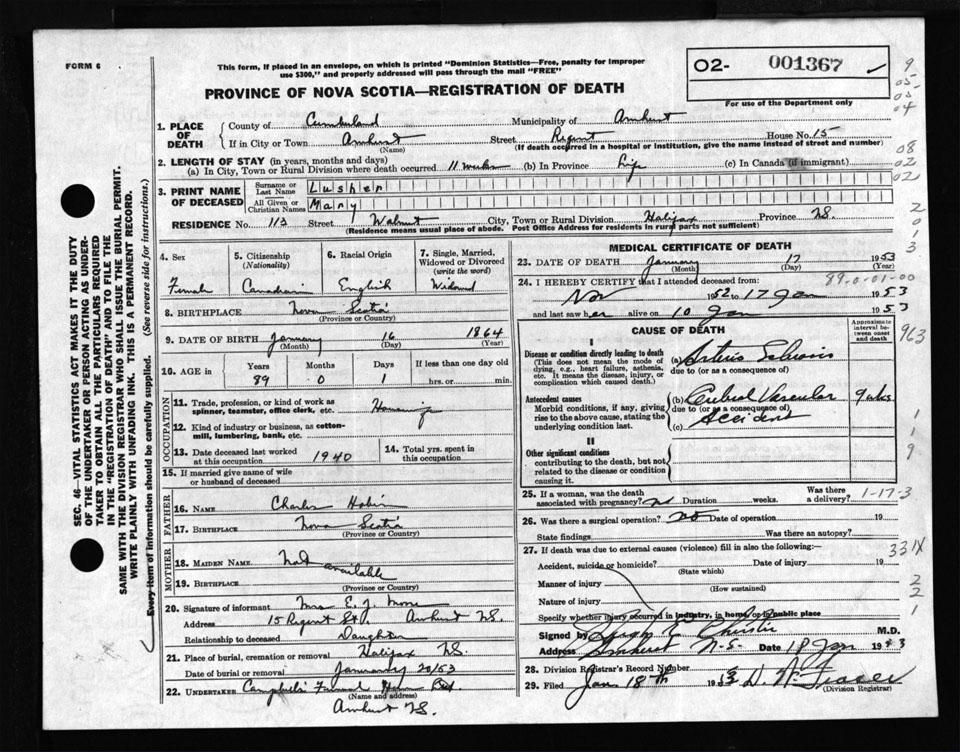 FORM 6
This form, if placed in an envelope, on which is printed "Dominion Statistics—Free, penalty for improper
use $300," and properly addressed will pass through the mail "FREE"
O2- 001367 ✓
For use of the Department only
PROVINCE OF NOVA SCOTIA—REGISTRATION OF DEATH
1. PLACE OF DEATH
County of Cumberland Municipality of Amherst
If in City or Town Amherst Street Regent House No. 15
(Name) (If death occurred in a hospital or institution, give the name instead of street and number)
2. LENGTH OF STAY (in years, months and days)
(a) In City, Town or Rural Division where death occurred 11 weeks (b) In Province Life (c) In Canada (if immigrant)
3. PRINT NAME OF DECEASED
Surname or Last Name Lusher
All Given or Christian Names Mary
RESIDENCE No. 113 Street Walnut City, Town or Rural Division Halifax Province N.S.
(Residence means usual place of abode. Post Office Address for residents in rural parts not sufficient)
4. Sex Female
5. Citizenship (Nationality) Canadian
6. Racial Origin English
7. Single, Married, Widowed or Divorced (write the word) Widowed
8. BIRTHPLACE Nova Scotia
(Province or Country)
9. DATE OF BIRTH January 16 1864
(Month) (Day) (Year)
10. AGE in Years 89 Months 0 Days 1 If less than one day old hrs. or min.
OCCUPATION
11. Trade, profession, or kind of work as spinner, teamster, office clerk, etc. Housewife
12. Kind of industry or business, as cotton-mill, lumbering, bank, etc.
13. Date deceased last worked at this occupation 1940
14. Total yrs. spent in this occupation
15. If married give name of wife or husband of deceased
FATHER
16. NAME Charles
17. BIRTHPLACE Nova Scotia
(Province or Country)
MOTHER
18. MAIDEN NAME Not available
19. BIRTHPLACE
(Province or Country)
20. Signature of informant Mrs E. J. Moore
Address 15 Regent St., Amherst N.S.
Relationship to deceased Daughter
21. Place of burial, cremation or removal Halifax N.S.
Date of burial or removal January 20/53
22. UNDERTAKER Campbells Funeral Home
(Name and address)
Amherst N.S.
MEDICAL CERTIFICATE OF DEATH
23. DATE OF DEATH January 17 1953
(Month) (Day) (Year)
89-0-01-00
24. I HEREBY CERTIFY that I attended deceased from:
Nov 1952 to 17 Jan 1953
and last saw her alive on 10 Jan 1953
CAUSE OF DEATH
Approximate interval between onset and death
I
Disease or condition directly leading to death
(This does not mean the mode of dying, e.g., heart failure, asthenia, etc. It means the disease, injury, or complication which caused death.)
(a) Arterio Sclerosis
due to (or as a consequence)
Antecedent causes
Morbid conditions, if any, giving rise to the above cause, stating the underlying condition last.
(b) Cerebral Vascular 9 wks
due to (or as a consequence)
(c) Accident
II
Other significant conditions
contributing to the death, but not related to the disease or condition causing it.
25. If a woman, was the death associated with pregnancy? no Duration weeks. Was there a delivery? 1-17-3
26. Was there a surgical operation? no Date of operation 19
State findings Was there an autopsy?
27. If death was due to external causes (violence) fill in also the following:—
Accident, suicide or homicide? Date of injury 19
(State which)
Manner of injury
(How sustained)
Nature of injury
Specify whether injury occurred in industry, in home, or in public place
Signed by Christie M.D.
Address Amherst N.S. Date 18 Jan 19
28. Division Registrar's Record Number
29. Filed Jan 18th 1953
(Division Registrar)
SEC. 46—VITAL STATISTICS ACT MAKES IT THE DUTY
OF THE UNDERTAKER OR PERSON ACTING AS UNDER-
TAKER TO OBTAIN ALL THE PARTICULARS REQUIRED
IN THE "REGISTRATION OF DEATH" AND TO FILE THE
SAME WITH THE DIVISION REGISTRAR WHO SHALL ISSUE THE BURIAL PERMIT.
WRITE PLAINLY WITH UNFADING INK. THIS IS A PERMANENT RECORD.
Every item of information should be carefully supplied. (See reverse side for instructions.)
9
05
05
04
08
02
02
2
0
1
3
963
1
1
9
331X
2
2
1